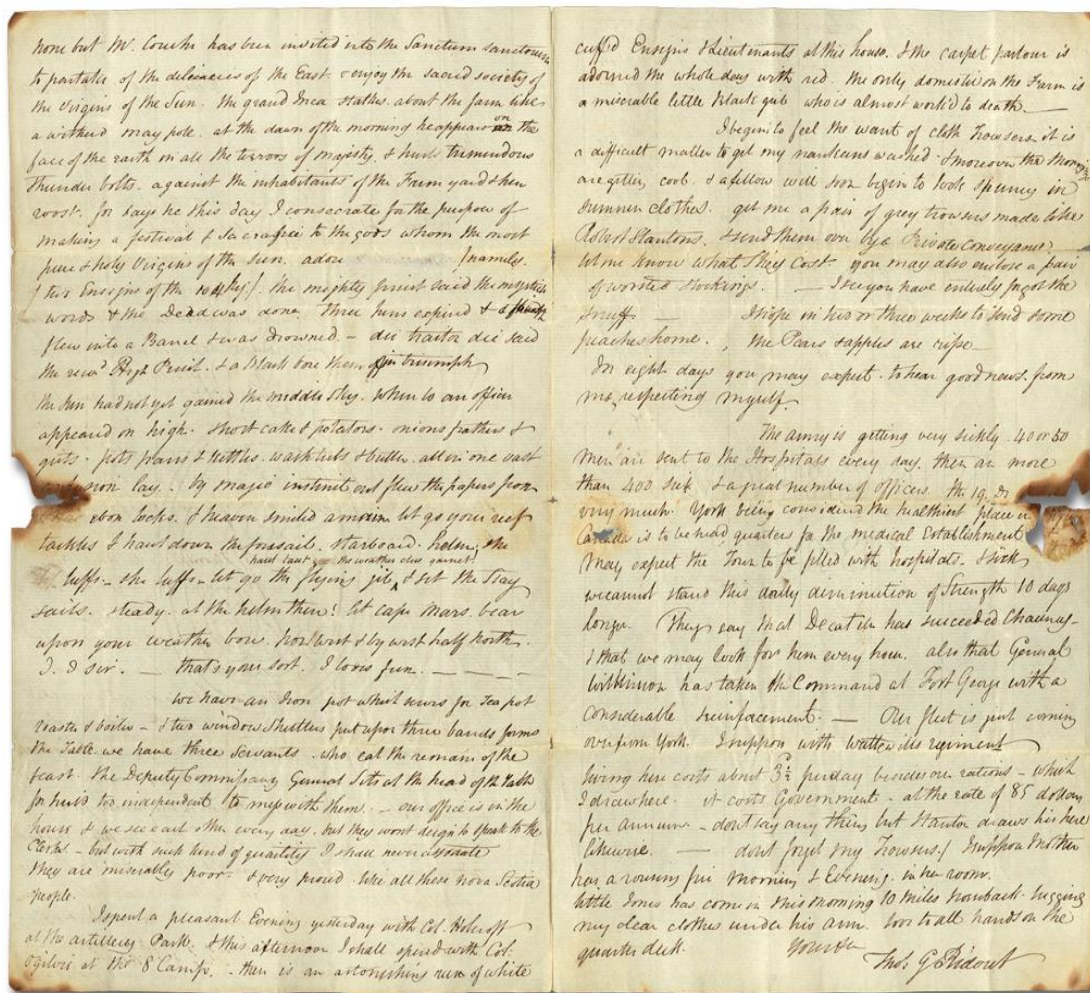 none but Mr. Couche has been invited into the Sanctum sanctorum
to partake of the delicacies of the East & enjoy the sacred society of
the Virgins of the Sun. the grand Inca stalks about the farm like
a witherd may pole. at the dawn of the morning he appears on the
face of the earth in all the terrors of majesty. & hurls tremendous
thunder bolts. against the inhabitants of the Farm yard & hen
roost. for says he this day I consecrate for the purpose of
making a festival & sacrafice to the gods whom the most
pure & holy Virgins of the Sun. adore (namely.
(two Ensigns of the 104 Reg). the mighty priest said the mystick
words & the Deed was done three hens expired & a
flew into a Barrel & was drowned. – die traitor die said
the revd. High Priest. & a Black bore them off in triumph
the Sun had not yet gained the middle sky. When lo an officer
appeared on high. short cakes & potatoes. onions feathers &
guts. pots pans & kettles. wash tubs & butter. all in one vast
confusion lay. by magic instinct out flew the papers from
ebon locks. & heaven smiled let go your reef
tackles & haul down the foresail. starboard. helm; she
haul taut the weather clue garnet!
luffs – she luffs – let go the flying jib, & set the stay
sails. steady. at the helm there! let cape Mars. bear
upon your weather bow. Nor West & by west half North.
I. I sir. – that's your sort. I loves fun. – – – –
we have an Iron pot which serves for Tea pot
roaster & boiler – & two window Shutters put upon three bands forms
the Table we have three servants. who eat the remains of the
feast. the Deputy Commissary General Sits at the head of the Table
for he is too independent to mess with them. – our office is in the
house & we see each other every day. but they wont deign to speak to the
Clerks – but with such kind of quantity I shall never associate
they are miserably poor. & very proud. like all these nova Scotia
people.
I spent a pleasant Evening yesterday with Col. Holcroft
at the artillery Park. & this afternoon I shall spend with Col:
Ogilvie at the 8 Camp. – there is an astonishing run of white
cuff'd Ensigns & Lieutenants at this house. & the carpet parlour is
adorned the whole day with red. the only domestic on the Farm is
a miserable little black girl who is almost work'd to death. —
I begin to feel the want of cloth trowsers it is
a difficult matter to get my nankeens washed & moreover the Morngs
are getting cool. & a fellow will soon begin to look spuney in
summer clothes. get me a pair of grey trowsers made like
Stantons. & send them over by a Private Conveyance;
let me know what they cost. you may also enclose a pair
of worsted stockings. — I see you have entirely forgot the
snuff — I hope in two or three weeks to send some
peaches home., the Pears & apples are ripe—
In eight days you may expect to hear good news. from
me, respecting myself.
The army is getting very sickly. 40 or 50
men are sent to the Hospitals every day. there are more
than 400 sick & a great number of officers. the 19. Ds
very much. York being considered the healthiest place in
Canada is to be head quarters for the medical Establishment
may expect the Town to be filled with hospitals. & sick
we cannot stand this daily diminution of Strength 10 days
longer. They say that Decatur has succeeded Chauncy—
& that we may look for him every hour. also that General
Wilkinson has taken the Command at Fort George with a
considerable reinforcement. — Our fleet is just coming
over from York. I suppose with Wattevilles regiment
living here costs about 3/ per day besides our rations – which
I draw here. it costs Government. at the rate of 85 dollars
per annum – dont say any thing but Stanton draws his here
likewise. — dont forget my Trowsers.! I suppose Mother
has a rousing fire Morning & Evening in her room.
little Jones has come in this morning 10 miles horseback. lugging
my clean clothes under his arm. love to all hands on the
quarter deck. Yours &c
Thos. G Ridout